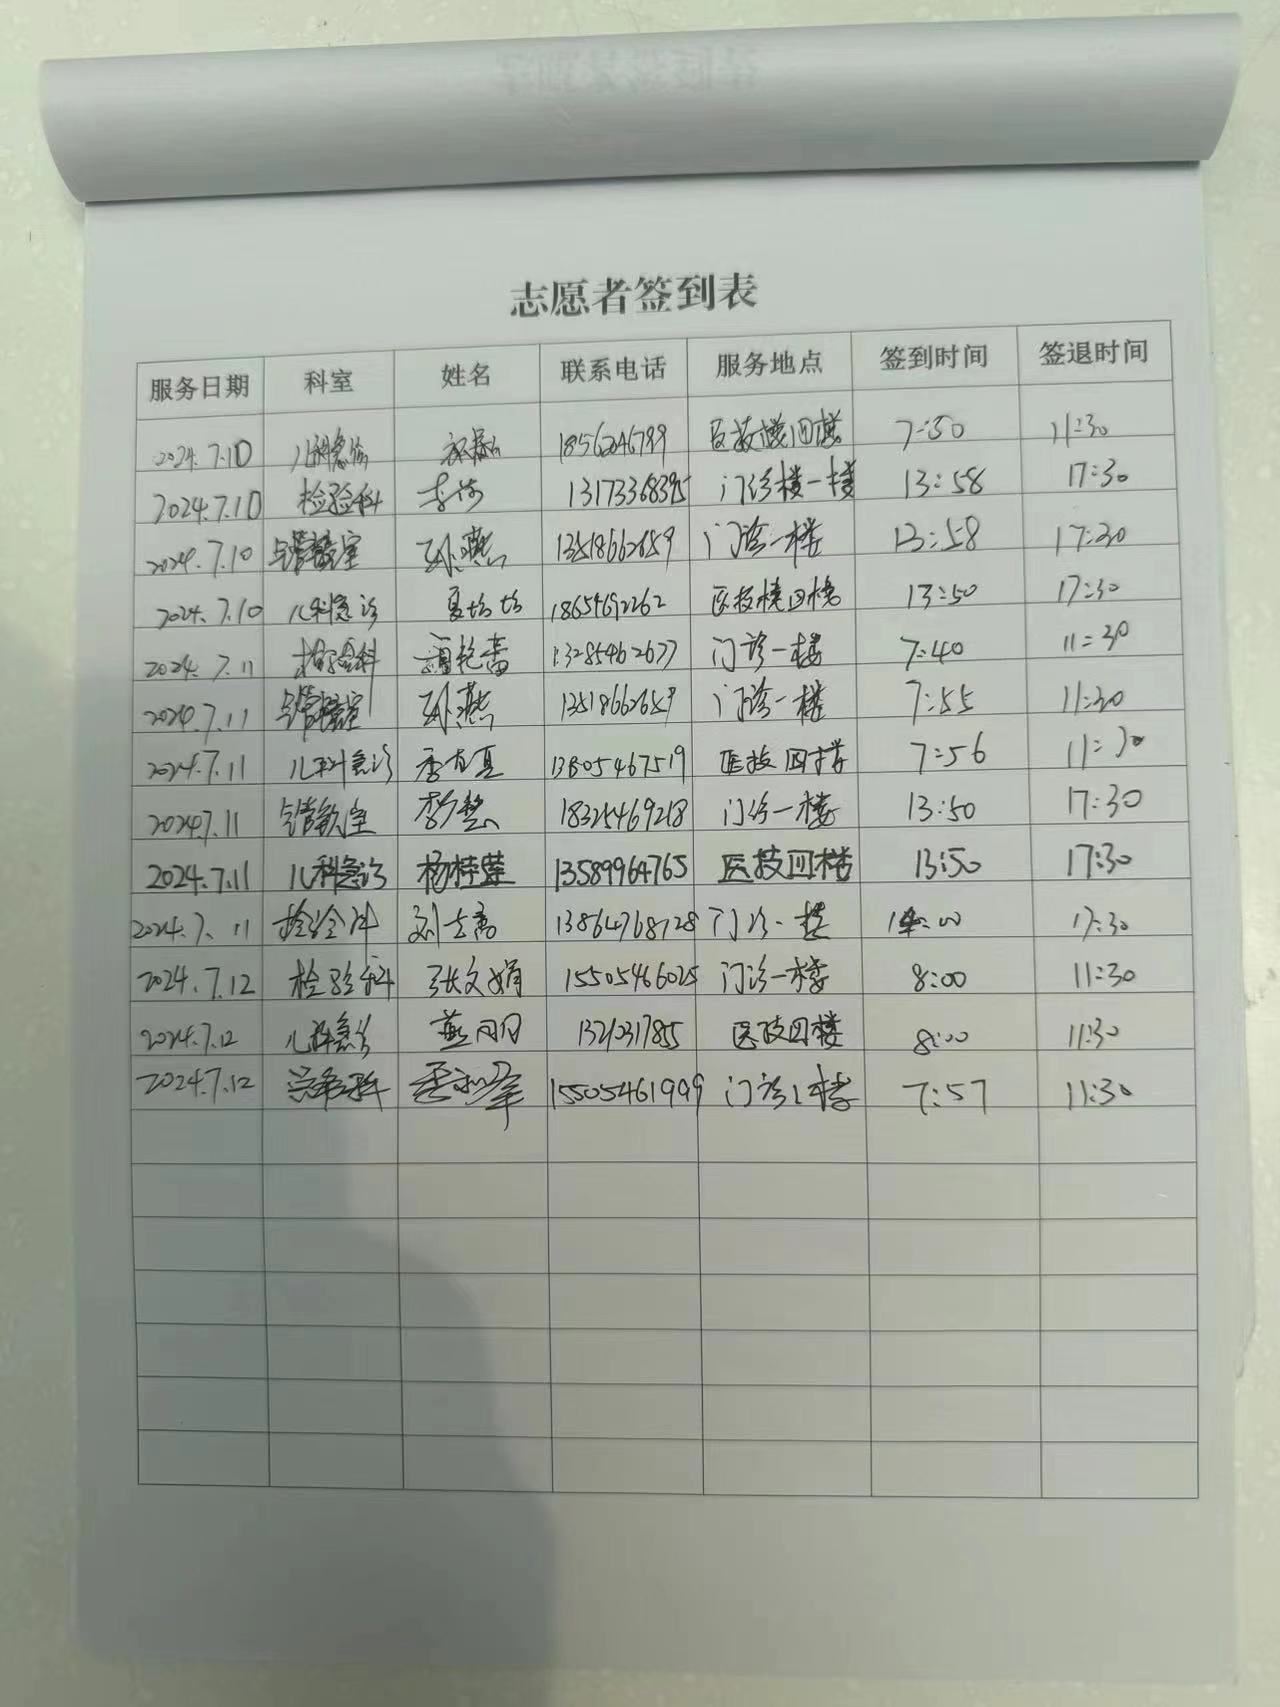 志愿者签到表
服务日期 科室 姓名 联系电话 服务地点 签到时间 签退时间
2024.7.10 儿科急诊 18562046799 医技楼四楼 7:50 11:30
2024.7.10 检验科 李 13173368395 门诊楼一楼 13:58 17:30
2024.7.10 孙燕 13518662659 门诊一楼 13:58 17:30
2024.7.10 儿科急诊 夏 18654692262 医技楼四楼 13:50 17:30
2024.7.11 检验科 13285462677 门诊一楼 7:40 11:30
2024.7.11 孙燕 13518662659 门诊一楼 7:55 11:30
2024.7.11 儿科急诊 季 13805467519 医技四楼 7:56 11:30
2024.7.11 李 18325469218 门诊一楼 13:50 17:30
2024.7.11 儿科急诊 杨桂 13589964765 医技四楼 13:50 17:30
2024.7.11 检验科 刘 13864768728 门诊一楼 14:00 17:30
2024.7.12 检验科 张文娟 15505466025 门诊一楼 8:00 11:30
2024.7.12 儿科急诊 燕 1321031785 医技四楼 8:00 11:30
2024.7.12 15505461999 门诊 楼 7:57 11:30